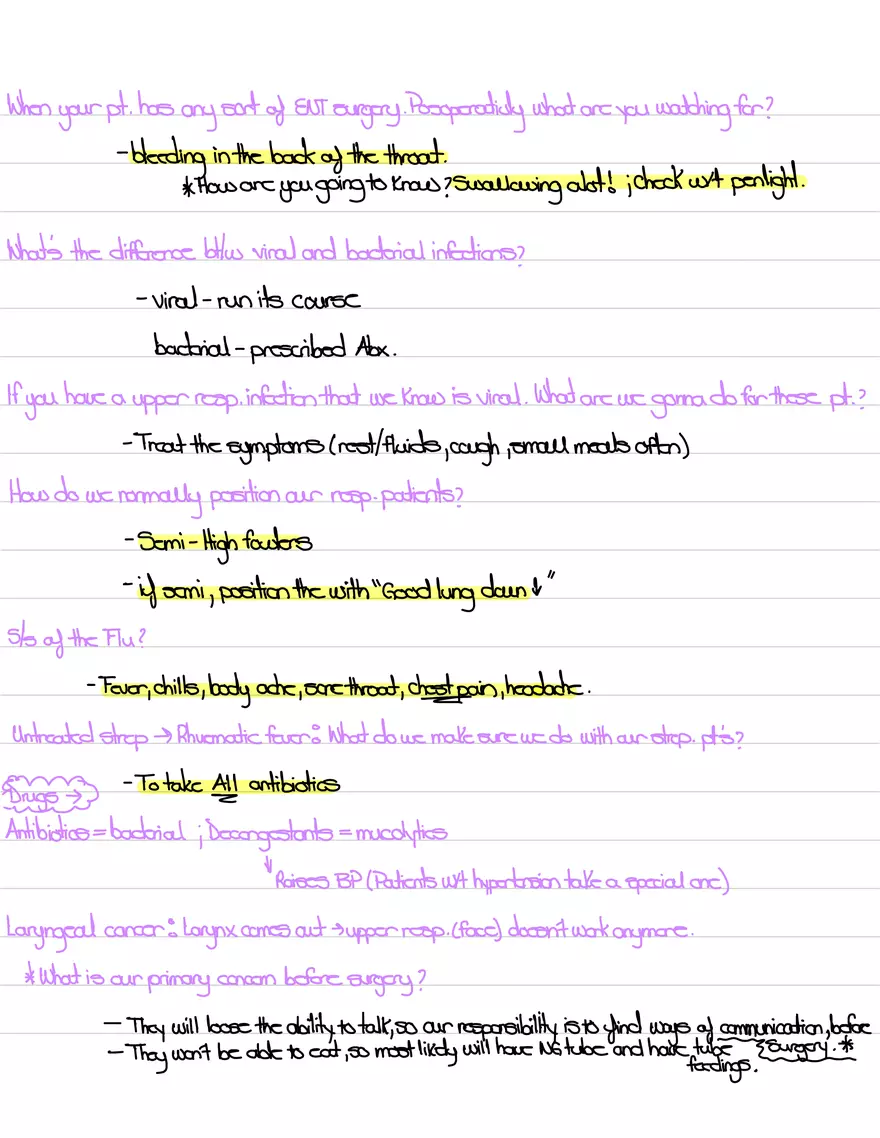 When your pt. has any sort of ENT surgery. Posoporadicly what are you watching for?
- bleeding in the back of the throat.
* How are you going to know? Swallowing alot! ; check w/t penlight.
What's the difference bt/w viral and bacterial infections?
- viral - run its course
bacterial - prescribed Abx.
If you have a upper resp. infection that we know is viral. What are we gonna do for these pt.?
- Treat the symptoms (rest/fluids, cough, small meals often)
How do we normally position our resp. patients?
- Semi - High fowlers
- if semi, position the with "Good lung down ↓"
S/s of the Flu?
- Fever, chills, body ache, sore throat, chest pain, headache.
Untreated strep → Rhuematic fever: What do we make sure we do with our strep. pt's?
- To take All antibiotics
Drugs →
Antibiotics = bacterial ; Decongestants = mucolytics
↓ Raises BP (Patients w/t hypertension take a special one)
Laryngeal cancer: Larynx comes out → upper resp. (face) doesn't work anymore.
* What is our primary concern before surgery?
- They will loose the ability to talk, so our responsibility is to find ways of communication, before surgery. *
- They won't be able to eat, so most likely will have NG tube and have tube feedings.